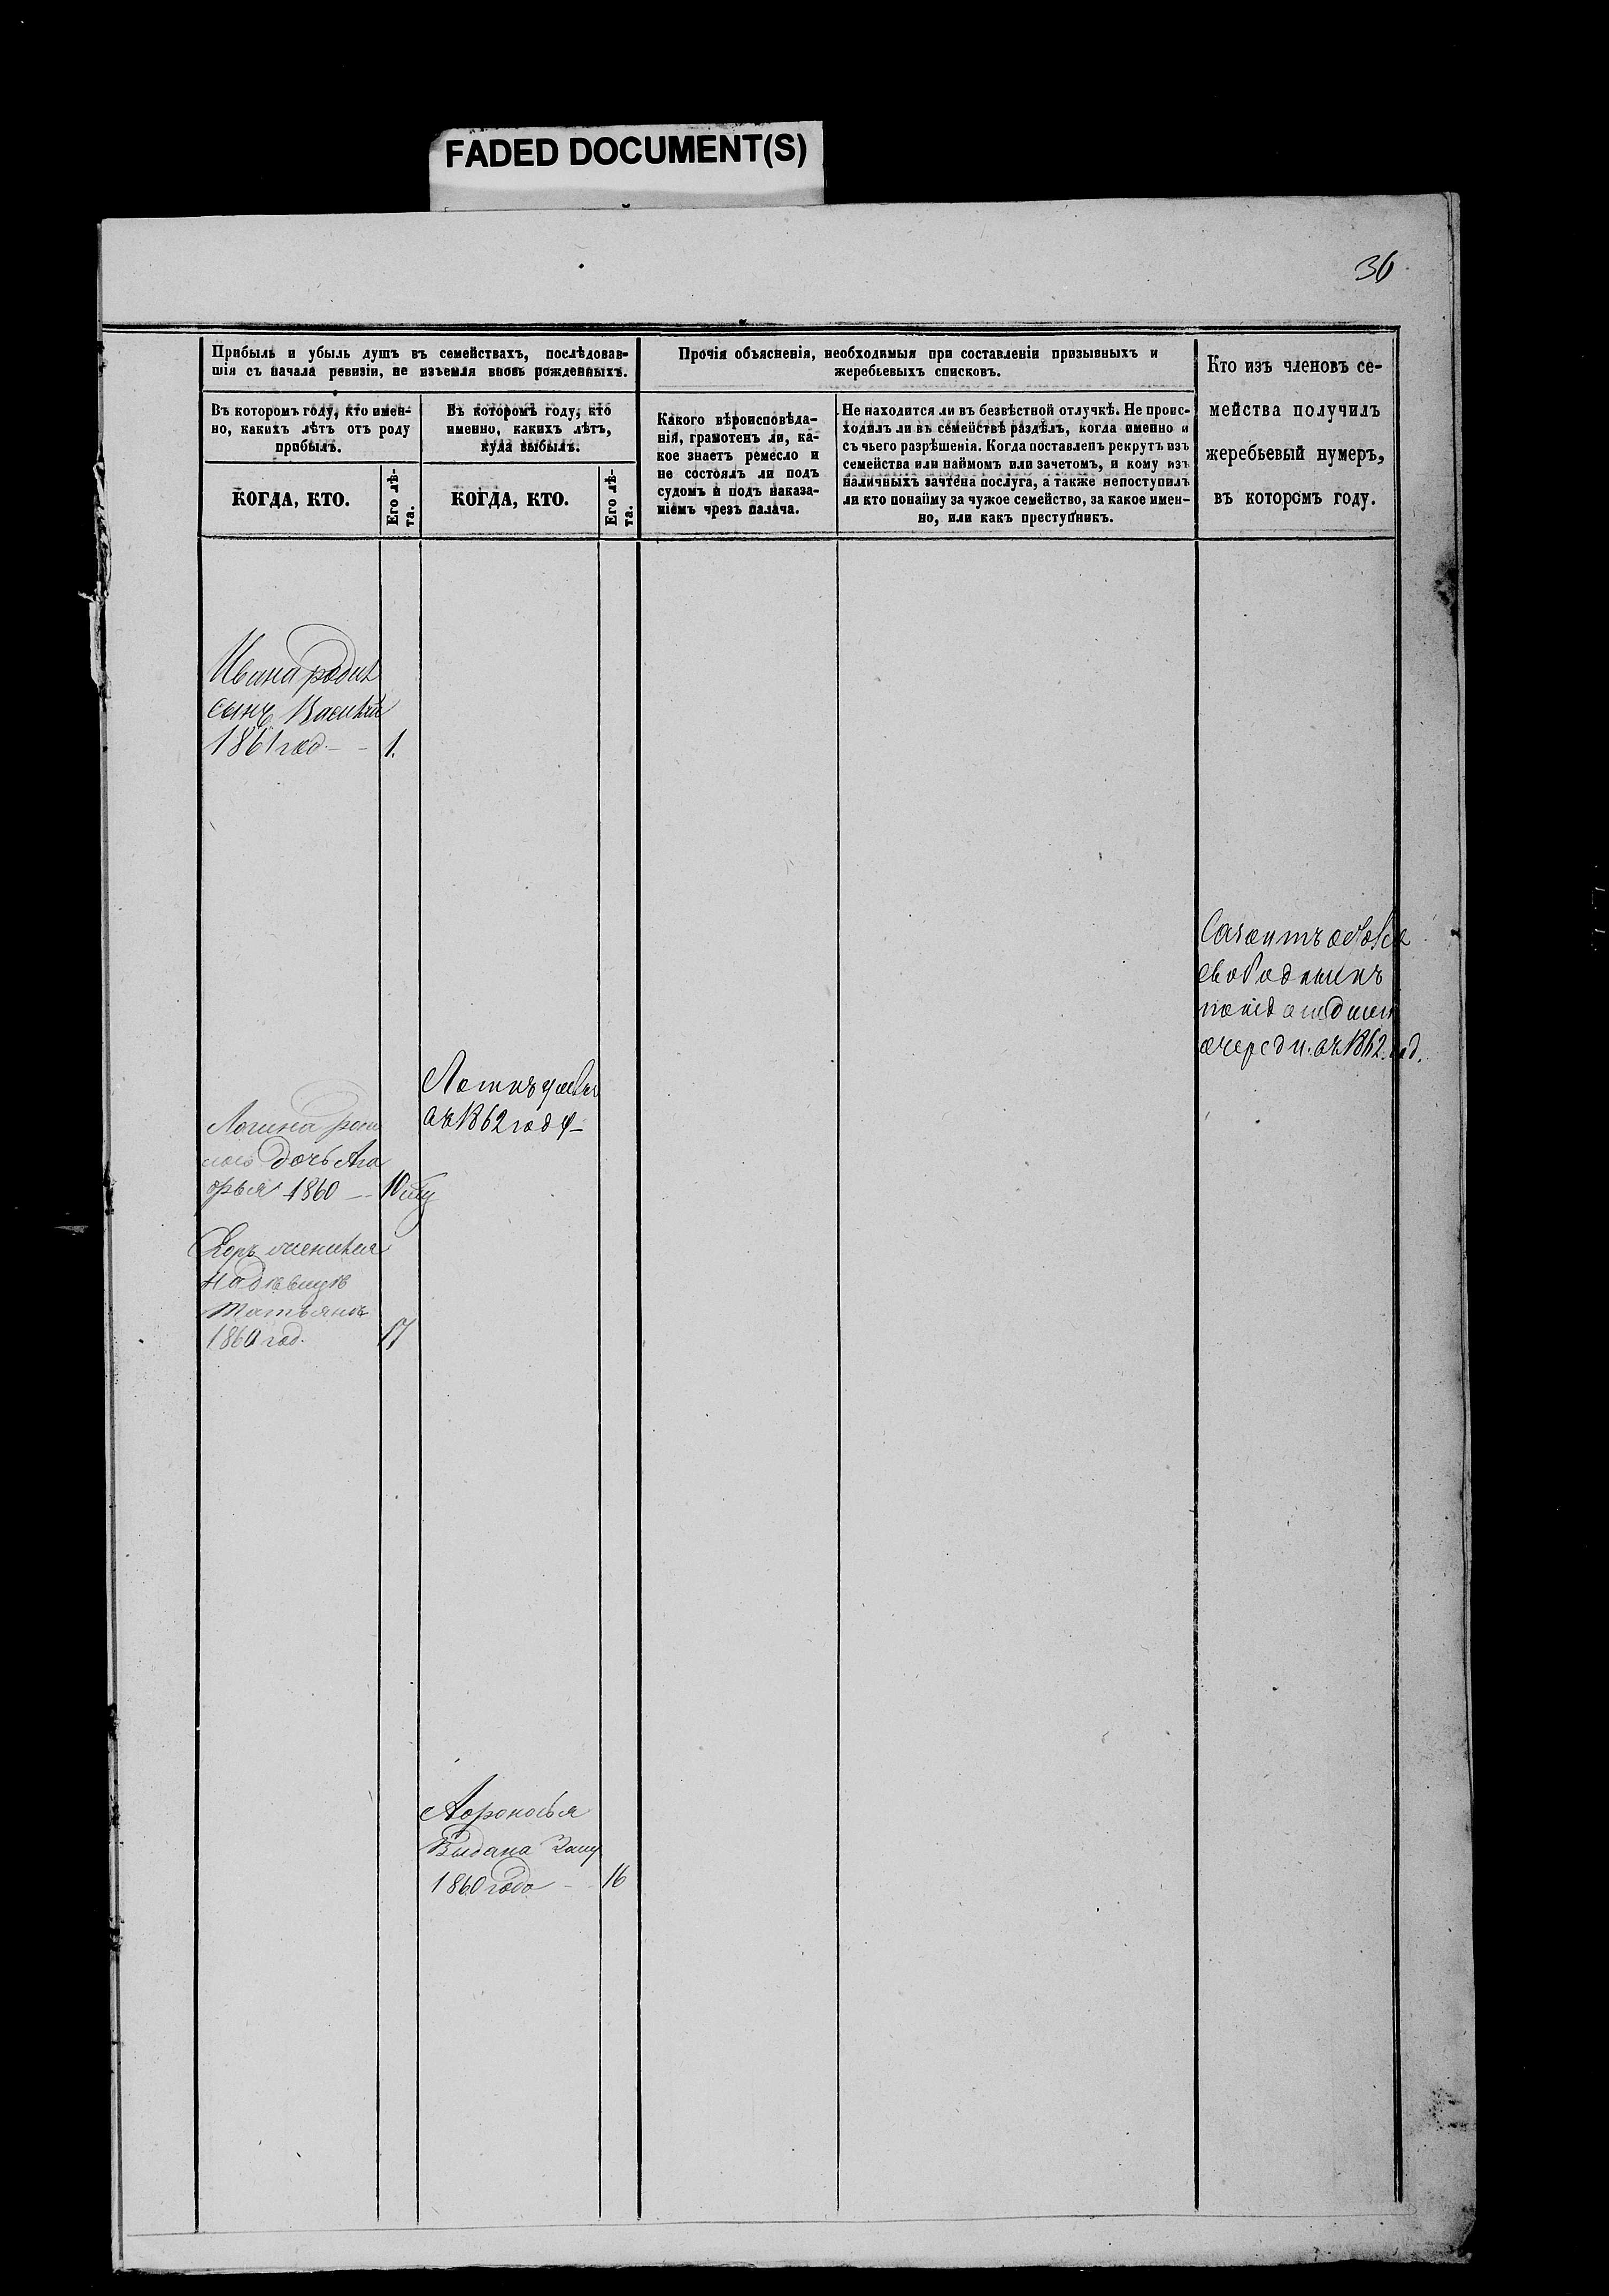 FADED DOCUMENT(S)
36
Прибыль и убыль душъ въ семействахъ, послѣдовав-
шія съ начала ревизіи, не изъемля вновь рожденныхъ.
Въ которомъ году, кто имен-
но, какихъ лѣтъ отъ роду
прибылъ.
КОГДА, КТО.
Его лѣ-
та.
Въ которомъ году, кто
именно, какихъ лѣтъ,
куда выбылъ.
КОГДА, КТО.
Его лѣ-
та.
Прочія объясненія, необходимыя при составленіи призывныхъ и
жеребьевыхъ списковъ.
Какого вѣроисповѣда-
нія, грамотенъ ли, ка-
кое знаетъ ремесло и
не состоялъ ли подъ
судомъ и подъ наказа-
ніемъ чрезъ палача.
Не находится ли въ безвѣстной отлучкѣ. Не проис-
ходилъ ли въ семействѣ раздѣлъ, когда именно и
съ чьего разрѣшенія. Когда поставленъ рекрутъ изъ
семейства или наймомъ или зачетомъ, и кому изъ
наличныхъ зачтена послуга, а также непоступилъ
ли кто понайму за чужое семейство, за какое имен-
но, или какъ преступникъ.
Кто изъ членовъ се-
мейства получилъ
жеребьевый нумеръ,
въ которомъ году.
сынъ Василій
1861 год. - - 1.
очереди. 1862 год.
1862 году -
Логина
дочь
1860 -- 10
Татьяна
1860 год. 17
Выдана Заму
1860 года - 16